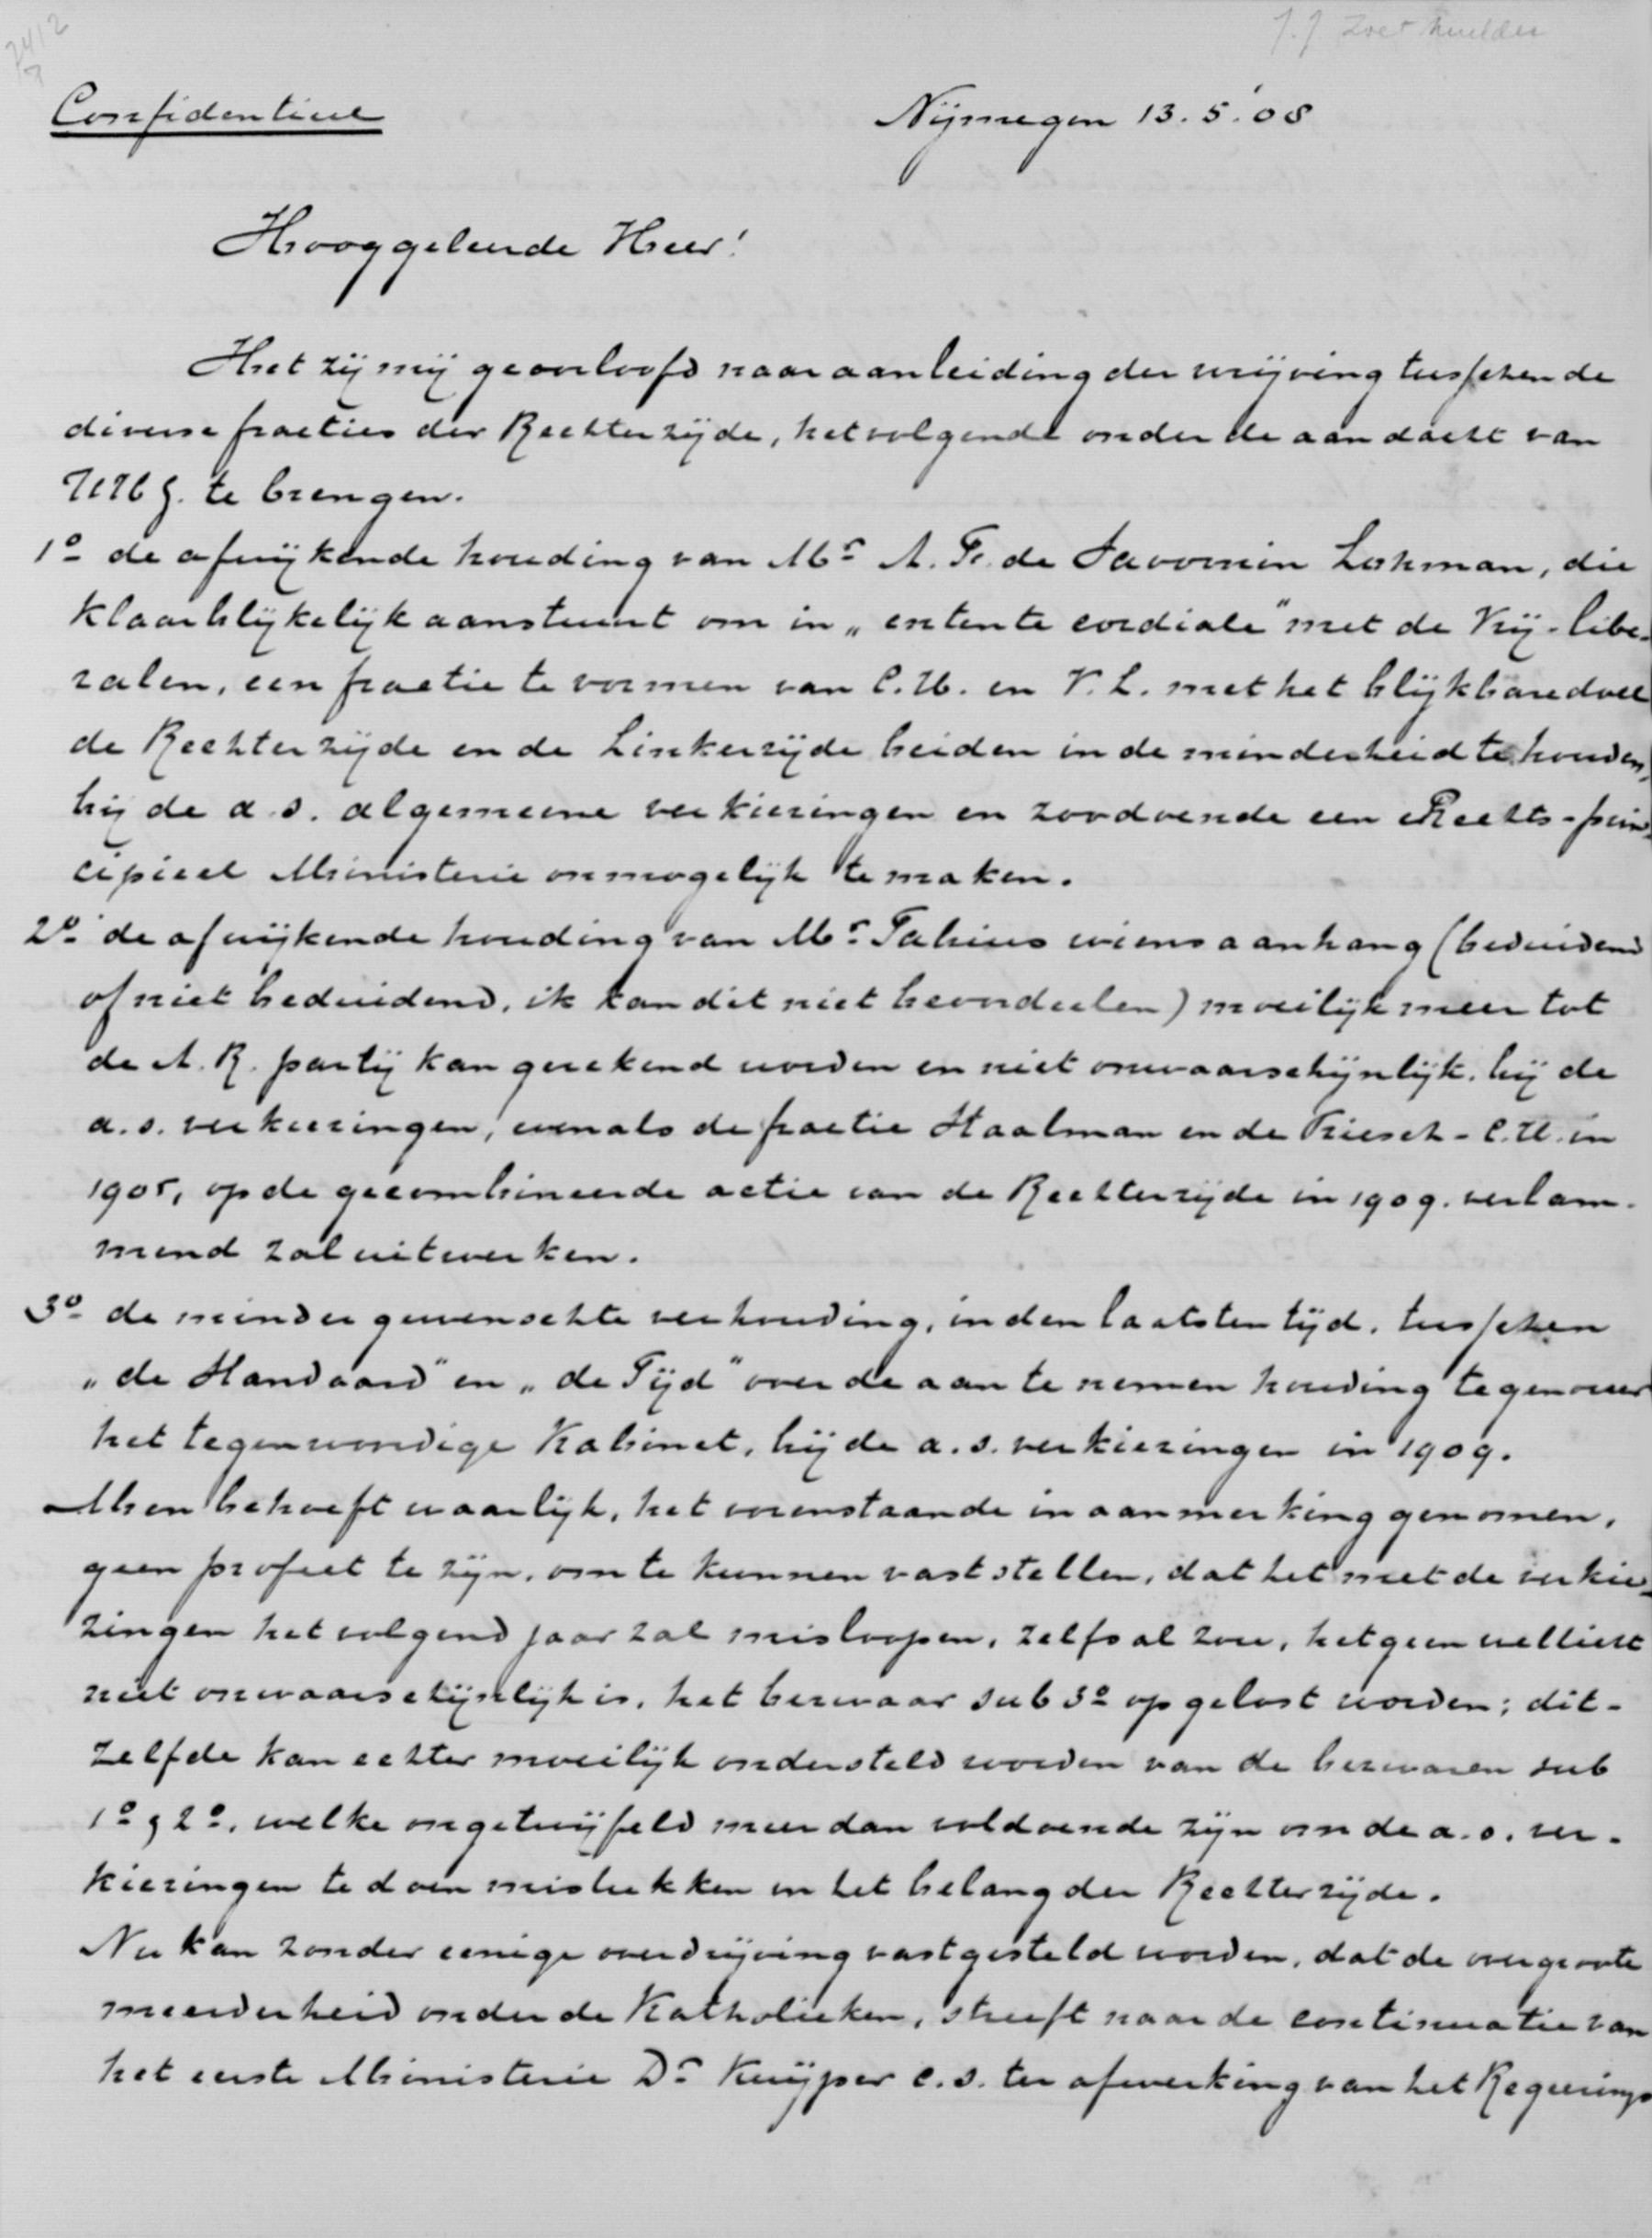 7412
J. J. Zoetmulder
Confidentieel
Nijmegen 13.5.'08
Hooggeleerde Heer!
Het zij mij geoorloofd naar aanleiding der wrijving tusschen de
diverse fracties der Rechterzijde, het volgende onder de aandacht van
UHG. te brengen.
1o de afwijkende houding van Mr A. F. de Savornin Lohman, die
klaarblijkelijk aanstuurt om in „entente cordiale" met de Vrij-libe-
ralen, een fractie te vormen van C.H. en V.L. met het blijkbare doel
de Rechterzijde en de Linkerzijde beiden in de minderheid te houden,
bij de a.s. algemeene verkiezingen en zoodoende een Rechts-prin-
cipieel Ministerie onmogelijk te maken.
2o de afwijkende houding van Mr Talma wiens aanhang (beduidend
of niet beduidend, ik kan dit niet beoordeelen) moeilijk meer tot
de A.R. partij kan gerekend worden en niet onwaarschijnlijk, bij de
a.s. verkiezingen, evenals de fractie Staalman en de Friesch-C.H. in
1905, op de gecombineerde actie van de Rechterzijde in 1909. verlam-
mend zal uitwerken.
3o de minder gewenschte verhouding, in den laatsten tijd, tusschen
„de Standaard" en „de Tijd" over de aan te nemen houding tegenover
het tegenwoordige Kabinet, bij de a.s. verkiezingen in 1909.
Men behoeft waarlijk, het vorenstaande in aanmerking genomen,
geen profeet te zijn, om te kunnen vaststellen, dat het met de verkie-
zingen het volgend jaar zal misloopen, zelfs al zou, hetgeen wellicht
niet onwaarschijnlijk is, het bezwaar sub 3o opgelost worden; dit-
zelfde kan echter moeilijk ondersteld worden van de bezwaren sub
1o & 2o, welke ongetwijfeld meer dan voldoende zijn om de a.s. ver-
kiezingen te doen mislukken in het belang der Rechterzijde.
Nu kan zonder eenige overdrijving vastgesteld worden, dat de overgroote
meerderheid onder de Katholieken, streeft naar de continuatie van
het eerste Ministerie Dr Kuijper c.s. ter afwerking van het Regeerings